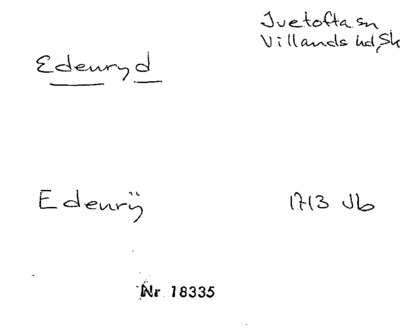 Ivetofta sn
Villands hd, Sk
Edenryd
Edenrÿ
1713 Jb
Nr 18335